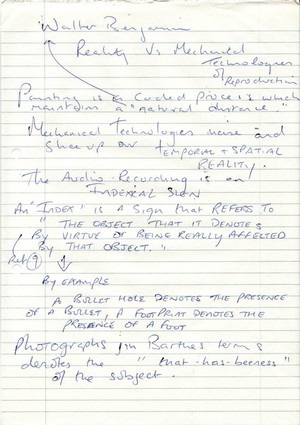 Walter Benjamin
Reality Vs Mechanical
Technologies
of
Reproduction
Painting is a Coded Process which
maintains a "natural distance."
Mechanical Technologies and
Slice up our TEMPORAL + SPATIAL
REALITY.
The Audio Recording is an
INDEXICAL SIGN
An "INDEX" is a Sign that REFERS TO
" THE OBJECT THAT IT DENOTES
BY VIRTUE OF BEING REALLY AFFECTED
BY THAT OBJECT."
Ref ?
BY EXAMPLE
A BULLET HOLE DENOTES THE PRESENCE
OF A BULLET, A FOOTPRINT DENOTES THE
PRESENCE OF A FOOT
Photographs in Barthes terms
denotes the " that-has-beeness"
of the subject.